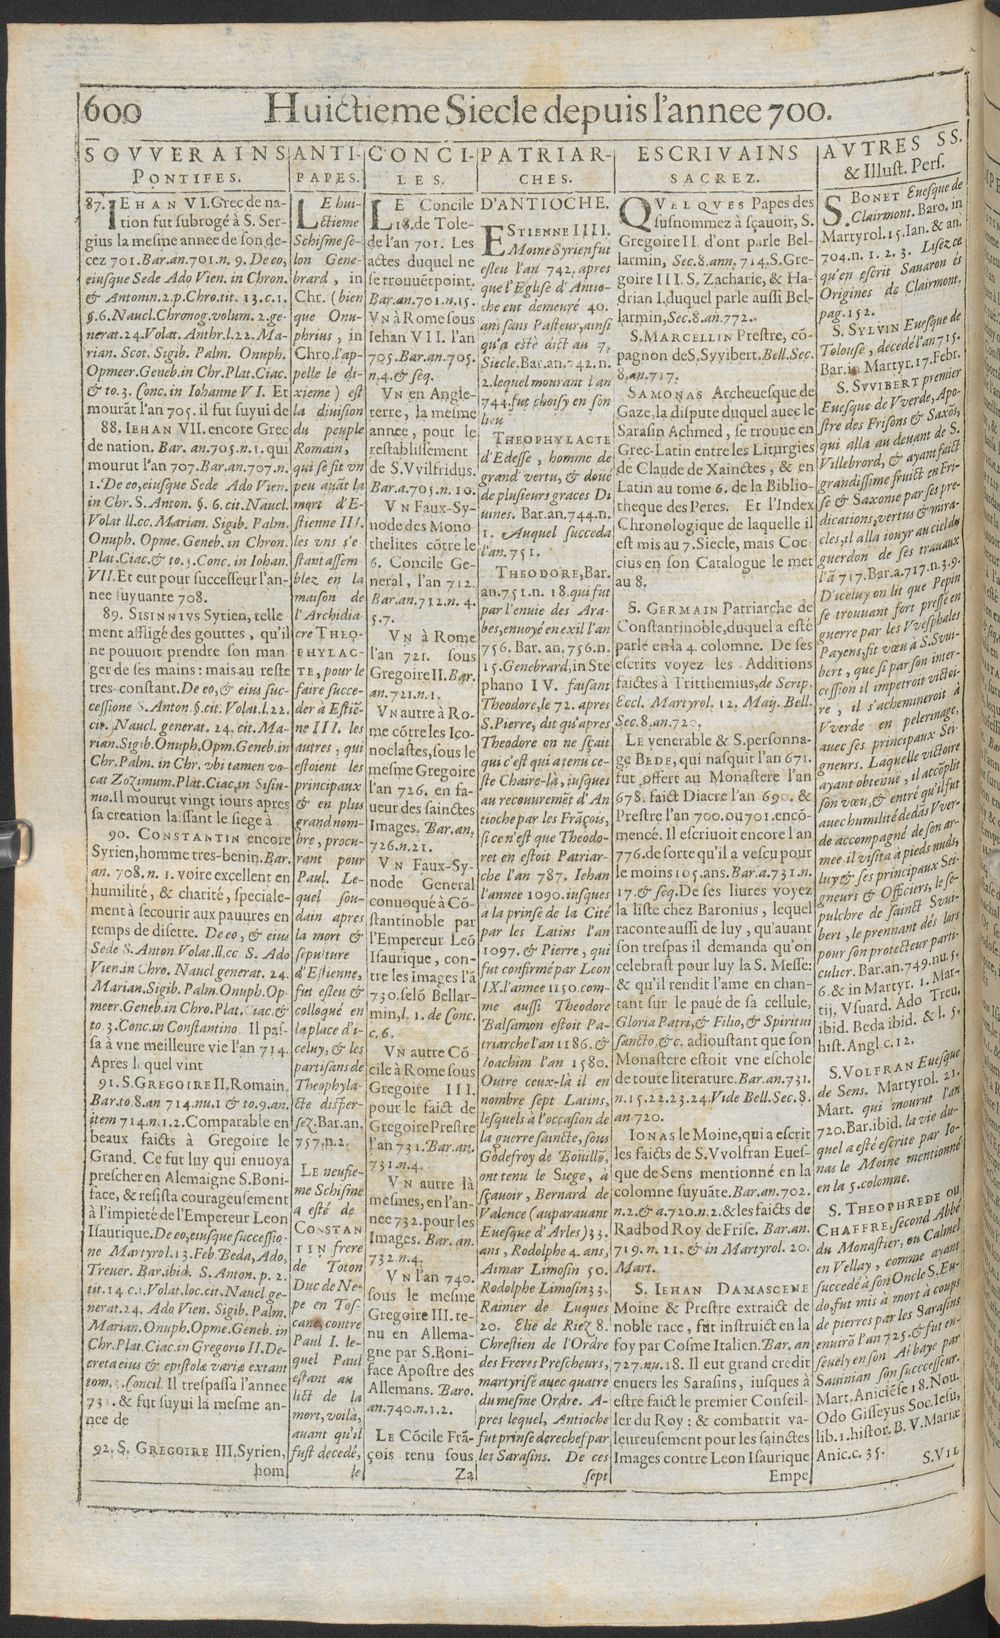 600
Huictieme Siecle depuis l'annee 700.
SOVVERAINS
PONTIFES.
87. IEHAN VI. Grec de na-
tion fut subrogé à S. Ser-
gius la mesme annee de son de-
cez 701. Bar.an.701.n. 9. De eo,
eiusque Sede Ado Vien. in Chron.
& Antonin.2.p.Chro.tit. 13.c.1.
§.6. Naucl.Chronog.volum. 2.ge-
nerat.24. Volat. Anthr.l.22. Ma-
rian. Scot. Sigib. Palm. Onuph.
Opmeer. Geneb. in Chr. Plat. Ciac.
& to.3. Conc. in Iohanne VI. Et
mourāt l'an 705. il fut suyui de
88. IEHAN VII. encore Grec
de nation. Bar. an.705.n.1. qui
mourut l'an 707. Bar.an.707.n.
1. De eo, eiusque Sede Ado Vien.
in Chr. S. Anton. §. 6. cit. Naucl.
Volat. ll.cc. Marian. Sigib. Palm.
Onuph. Opme. Geneb. in Chron.
Plat. Ciac. & to.3. Conc. in Iohan.
VII. Et eut pour successeur l'an-
nee suyuante 708.
89. SISINNIVS Syrien, telle
ment affligé des gouttes, qu'il
ne pouuoit prendre son man
ger de ses mains: mais au reste
tres-constant. De eo, & eius suc-
cessione S. Anton. §. cit. Volat. l.22.
cit. Naucl. generat. 24. cit. Ma-
rian. Sigib. Onuph. Opm. Geneb. in
Chr. Palm. in Chr. vbi tamen vo-
cat Zozimum. Plat. Ciac. in Sisin-
nio. Il mourut vingt iours apres
sa creation laissant le siege à
90. CONSTANTIN encore
Syrien, homme tres-benin. Bar.
an. 708.n. 1. voire excellent en
humilité, & charité, speciale-
ment à secourir aux pauures en
temps de disette. De eo, & eius
Sede S. Anton. Volat. ll.cc S. Ado
Vien. in Chro. Naucl generat. 24.
Marian. Sigib. Palm. Onuph. Op-
meer. Geneb. in Chro. Plat. Ciac. &
to 3. Conc. in Constantino. Il pas-
sa à vne meilleure vie l'an 714.
Apres lequel vint
91. S. GREGOIRE II. Romain.
Bar.to.8.an 714.nu.1 & to.9.an.
item 714.n.1.2. Comparable en
beaux faicts à Gregoire le
Grand. Ce fut luy qui enuoya
prescher en Alemaigne S. Boni-
face, & resista courageusement
à l'impieté de l'Empereur Leon
Isaurique. De eo, eiusque successio-
ne Martyrol.13. Feb. Beda, Ado,
Treuer. Bar. ibid. S. Anton. p. 2.
tit. 14 c.1. Volat. loc. cit. Naucl. ge-
nerat. 24. Ado Vien. Sigib. Palm.
Marian. Onuph. Opme. Geneb. in
Chr. Plat. Ciac. in Gregorio II. De-
creta eius & epistolæ variæ extant
tom. Concil. Il trespassa l'annee
731. & fut suyui la mesme an-
nee de
92. S. GREGOIRE III. Syrien,
hom
ANTI-
PAPES.
LE hui-
ctieme
Schisme se-
lon Gene-
brard, in
Chr. (bien
que Onu-
phrius, in
Chro. l'ap-
pelle le di-
xieme) est
la diuision
du peuple
Romain,
qui se fit vn
peu auāt la
mort d'E-
stienne III.
les vns s'e-
stant assem-
blez en la
maison de
l'Archidia-
cre THEO-
PHYLAC-
TE, pour le
faire succe-
der à Estiē-
ne III. les
autres, qui
estoient les
principaux
& en plus
grand nom-
bre, procu-
rant pour
Paul. Le-
quel sou-
dain apres
la mort &
sepulture
d'Estienne,
fut esleu &
colloqué en
la place d'i-
celuy, & les
partisans de
Theophyla-
cte disper-
sez. Bar. an.
757.n.2.
LE neufie-
me Schisme
a esté de
CONSTAN
TIN frere
de Toton
Duc de Ne-
pe en Tos-
cane contre
Paul I. le-
quel Paul
estant au
lict de la
mort, voilà,
auant qu'il
fust decedé,
le
CONCI-
LES.
LE Concile
18. de Tole-
de l'an 701. Les
actes duquel ne
se trouuēt point.
Bar.an.701.n.15.
VN à Rome sous
Iehan VII. l'an
705. Bar.an.705.
n.4. & seq.
VN en Angle-
terre, la mesme
annee, pour le
restablissement
de S. Vvilfridus.
Bar.a.705.n. 10.
VN Faux-Sy-
node des Mono
thelites cōtre le
6. Concile Ge-
neral, l'an 712.
Bar.an.712.n. 4.
5.7.
VN à Rome
l'an 721. sous
Gregoire II. Bar.
an.721.n.1.
VN autre à Ro-
me cōtre les Ico-
noclastes, sous le
mesme Gregoire
l'an 726. en fa-
ueur des sainctes
Images. Bar.an.
726.n.21.
VN Faux-Sy-
node General
conuoqué à Cō-
stantinoble par
l'Empereur Leō
Isaurique, con-
tre les images l'ā
730. selō Bellar-
min, l. 1. de Conc.
c.6.
VN autre Cō
cile à Rome sous
Gregoire III.
pour le faict de
Gregoire Prestre
l'an 731. Bar.an.
731.n.4.
VN autre là
mesmes, en l'an-
nee 732. pour les
Images. Bar. an.
732.n.4.
VN l'an 740.
sous le mesme
Gregoire III. te-
nu en Allema-
gne par S. Boni-
face Apostre des
Allemans. Baro.
an.740.n.1.2.
LE Cōcile Frā-
çois tenu sous
Za
PATRIAR-
CHES.
D'ANTIOCHE.
ESTIENNE IIII.
Moine Syrien fut
esleu l'an 742. apres
que l'Eglise d'Antio-
che eut demeuré 40.
ans sans Pasteur, ainsi
qu'a esté dict au 7.
Siecle. Bar.an.742.n.
2. lequel mourant l'an
744. fut choisy en son
lieu
THEOPHYLACTE
d'Edesse, homme de
grand vertu, & doué
de plusieurs graces Di
uines. Bar.an.744.n.
1. Auquel succeda
l'an.751.
THEODORE, Bar.
an.751.n. 18. qui fut
par l'enuie des Ara-
bes, enuoyé en exil l'an
756. Bar. an. 756.n.
15. Genebrard, in Ste
phano IV. faisant
Theodore, le 72. apres
S. Pierre, dit qu'apres
Theodore on ne sçait
qui c'est qui a tenu ce-
ste Chaire-là, iusques
au recouuremēt d'An
tioche par les Frāçois,
si ce n'est que Theodo-
ret en estoit Patriar-
che l'an 787. Iehan
l'annee 1090. iusques
à la prinse de la Cité
par les Latins l'an
1097. & Pierre, qui
fut confirmé par Leon
IX. l'annee 1150. com-
me aussi Theodore
Balsamon estoit Pa-
triarche l'an 1186. &
Ioachim l'an 1580.
Outre ceux-là il en
nombre sept Latins,
lesquels à l'occasion de
la guerre saincte, sous
Godefroy de Bouillō,
ont tenu le Siege, à
sçauoir, Bernard de
Valence (auparauant
Euesque d'Arles) 33.
ans, Rodolphe 4. ans,
Aimar Limosin 50.
Rodolphe Limosin 33.
Rainier de Luques
20. Elie de Riez 8.
Chrestien de l'Ordre
des Freres Prescheurs,
martyrisé auec quatre
du mesme Ordre. A-
pres lequel, Antioche
fut prinse derechef par
les Sarasins. De ces
sept
ESCRIVAINS
SACREZ.
QVELQVES Papes des
susnommez à sçauoir, S.
Gregoire II. d'ont parle Bel-
larmin, Sec.8.ann. 714. S. Gre-
goire III. S. Zacharie, & Ha-
drian I. duquel parle aussi Bel-
larmin, Sec.8.an.772.
S. MARCELLIN Prestre, cō-
pagnon de S. Svvibert. Bell. Sec.
8.an.717.
SAMONAS Archeuesque de
Gaze, la dispute duquel auec le
Sarasin Achmed, se trouue en
Grec-Latin entre les Liturgies
de Claude de Xainctes, & en
Latin au tome 6. de la Biblio-
theque des Peres. Et l'Index
Chronologique de laquelle il
est mis au 7. Siecle, mais Coc-
cius en son Catalogue le met
au 8.
S. GERMAIN Patriarche de
Constantinoble, duquel a esté
parlé en la 4. colomne. De ses
escrits voyez les Additions
faictes à Tritthemius, de Scrip.
Eccl. Martyrol. 12. May. Bell.
Sec.8.an.720.
LE venerable & S. personna-
ge BEDE, qui nasquit l'an 671.
fut offert au Monastere l'an
678. faict Diacre l'an 690. &
Prestre l'an 700. ou 701. encō-
mencé. Il escriuoit encore l'an
776. de sorte qu'il a vescu pour
le moins 105. ans. Bar.a.731.n.
17. & seq. De ses liures voyez
la liste chez Baronius, lequel
raconte aussi de luy, qu'auant
son trespas il demanda qu'on
celebrast pour luy la S. Messe:
& qu'il rendit l'ame en chan-
tant sur le paué de sa cellule,
Gloria Patri, & Filio, & Spiritui
sancto, &c. adioustant que son
Monastere estoit vne eschole
de toute literature. Bar.an.731.
n.15.22.23.24. Vide Bell. Sec. 8.
an.720.
IONAS le Moine, qui a escrit
les faicts de S. Vvolfran Eues-
que de Sens mentionné en la
colomne suyuāte. Bar.an.702.
n.2. & a.720.n.2. & les faicts de
Radbod Roy de Frise. Bar.an.
719.n. 11. & in Martyrol. 20.
Mart.
S. IEHAN DAMASCENE
Moine & Prestre extraict de
noble race, fut instruict en la
foy par Cosme Italien. Bar. an
727.nu.18. Il eut grand credit
enuers les Sarasins, iusques à
estre faict le premier Conseil-
ler du Roy: & combattit va-
leureusement pour les sainctes
Images contre Leon Isaurique
Empe
AVTRES SS.
& Illust. Pers.
S. BONET Euesque de
Clairmont. Baro. in
Martyrol. 15. Ian. & an.
704.n. 1. 2. 3. Lisez ce
qu'en escrit Sauaron és
Origines de Clairmont,
pag.152.
S. SYLVIN Euesque de
Tolouse, decedé l'an 715.
Bar. in Martyr. 17. Febr.
S. SVVIBERT premier
Euesque de Vverde, Apo-
stre des Frisons & Saxōs,
qui alla au deuant de S.
Villebrord, & ayant faict
grandissime fruict en Fri-
se & Saxonie par ses pre-
dications, vertus & mira-
cles, il alla iouyr au ciel du
guerdon de ses trauaux
l'ā 717. Bar.a.717.n.3.9.
D'iceluy on lit que Pepin
se trouuant fort pressé en
guerre par les Vvesphales
Payens, fit vœu à S. Svvi-
bert, que si par son inter-
cession il impetroit victoi-
re, il s'achemineroit à
Vverde en pelerinage,
auec ses principaux Sei-
gneurs. Laquelle victoire
ayant obtenue, il accōplit
son vœu, & entré qu'il fut
auec humilité dedās Vver-
de accompagné de son ar-
mee il visita à pieds nuds,
luy & ses principaux Sei-
gneurs & Officiers, le se-
pulchre de sainct Svvi-
bert, le prennant dés lors
pour son protecteur parti-
culier. Bar.an.749.nu.5.
6. & in Martyr. 1. Mar-
tij. Vsuard. Ado Treu.
ibid. Beda ibid. & l. 5.
hist. Angl c.12.
S. VOLFRAN Euesque
de Sens. Martyrol. 21.
Mart. qui mourut l'an
720. Bar. ibid. la vie du-
quel a esté escrite par Io-
nas le Moine mentionné
en la 5. colomne.
S. THEOPHREDE OU
CHAFFRE, second Abbé
du Monastier, ou Calmel
en Vellay, comme ayant
succedé à son Oncle S. Eu-
do, fut mis à mort à coups
de pierres par les Sarasins
enuirō l'an 725. & fut en-
seuely en son Abbaye par
Sauinian son successeur.
Mart. Aniciēse 18. Nou.
Odo Gisseyus Soc. Iesu,
lib. 1. histor. B. V. Mariæ
Anic.c. 35.
S. VIL